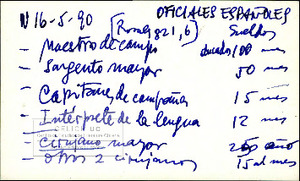 V 16-5-90 OFICIALES ESPAÑOLES
(Rosales 921,6) Sueldos
- Maestro de campo ducados 100 mes
- Sargento mayor 50 mes
- Capitane de campaña 15 mes
- Intérprete de la lengua 12 mes
- Cirujano mayor año
- Otros 2 cirujanos 15 al mes